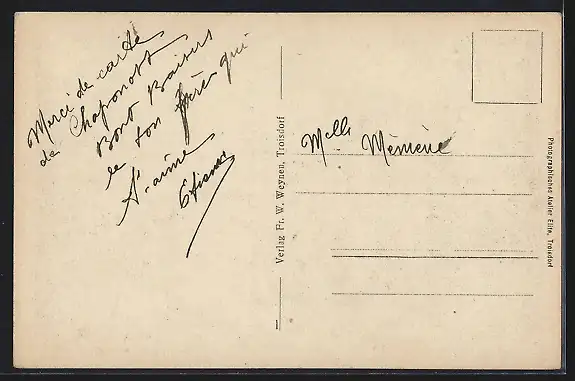 Merci de carte
de Chaponost
Bont Baisers
le ton frère qui
t'aime
Mlle Mémène
Verlag Fr. W. Weynen, Troisdorf
Photographisches Atelier Elite, Troisdorf